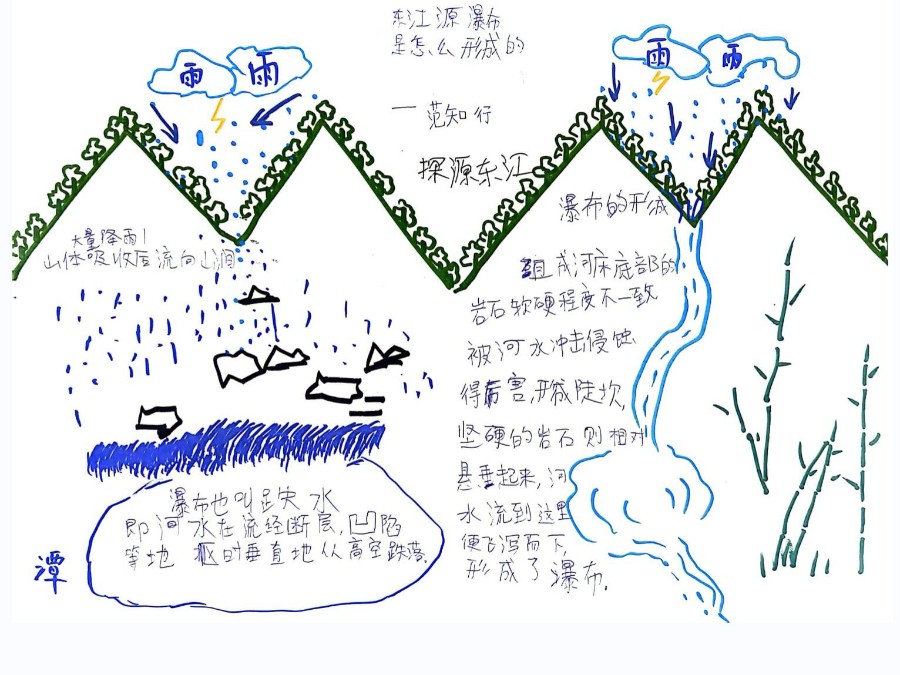 东江源瀑布
是怎么形成的
一范知行
探源东江
雨 雨
雨 雨
大量降雨
山体吸收后流向山涧
瀑布也叫跌水
即河水在流经断层,凹陷
等地 时垂直地从高空跌落
潭
瀑布的形成
组成河床底部的
岩石软硬程度不一致
被河水冲击侵蚀
得厉害,形成陡坎,
坚硬的岩石则相对
悬垂起来,河
水流到这里
便飞泻而下,
形成了瀑布.